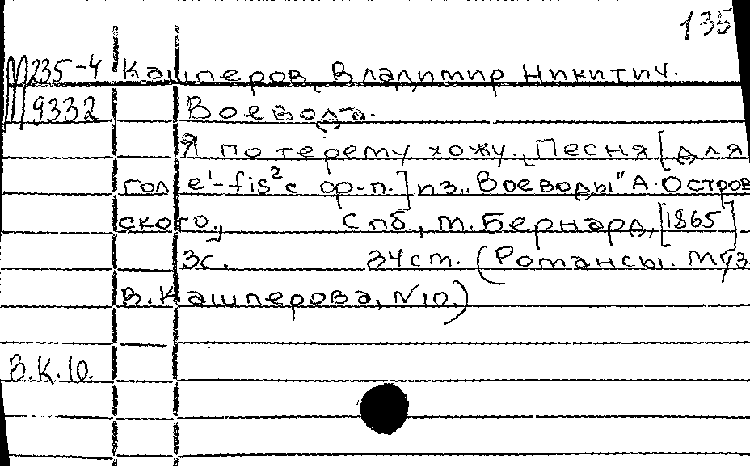 135
М235-4 Кашперов, Владимир Никитич.
9332 Воевода.
Я по терему хожу. Песня [для
гол e¹-fis² с ф-п.] из "Воеводы" А. Остров
ского., Спб, М. Бернард, [1865]
3с. 34см. (Романсы. Муз.
В. Кашперова, №10.)
В.К.10.